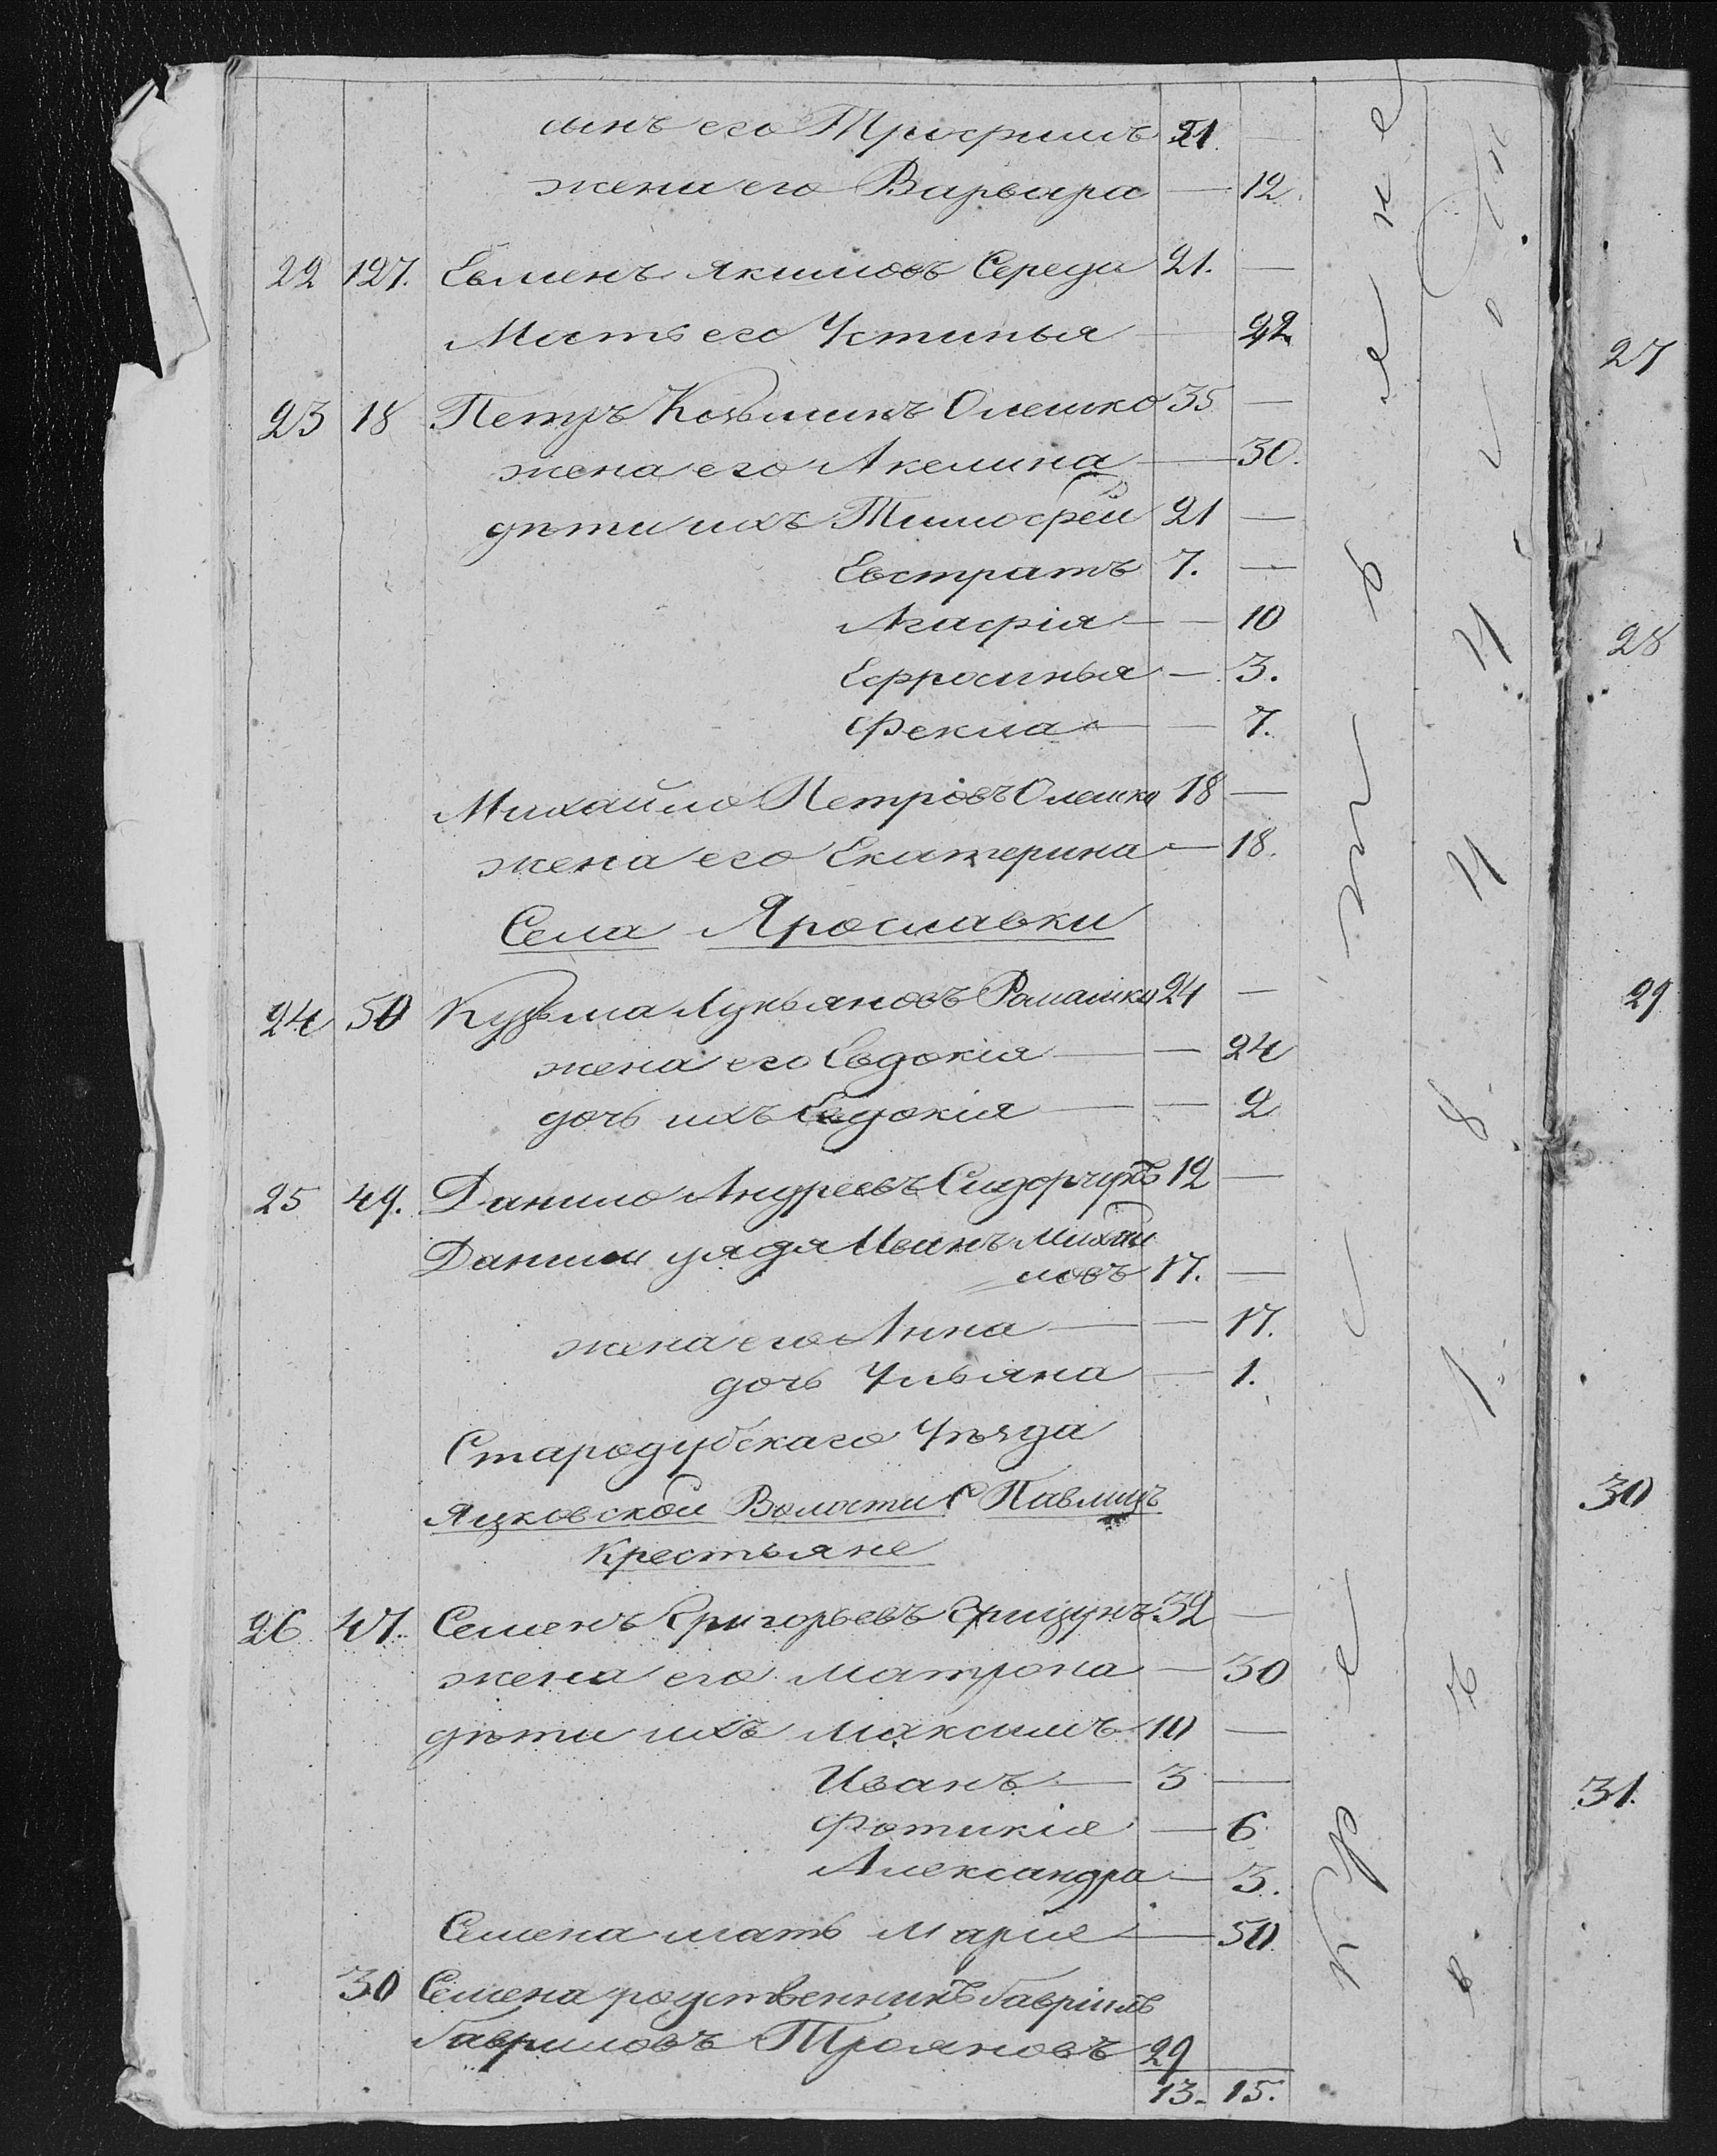 сынъ его Трифимъ 21. —
жена его Варвара — 12.
22 127. Евменъ Якимовъ Середа 21. —
Мать его Устинья — 42.
23 18 Петръ Козьминъ Олешко 35 —
жена его Акелина — 30.
дѣти ихъ Тимофей 21 —
Евстратъ 7. —
Агафія — 10
Ефросинья — 3.
Фекла — 7.
Михайло Петровъ Олешко 18 —
жена его Екатерина — 18.
Села Ярославки
24 50 Кузьма Лукьяновъ Ромашко 24 —
жена его Евдокія — 24
дочь ихъ Евдокія — 2
25 49. Данило Андреевъ Сидорчукъ 12 —
Данила дядя Иванъ Михай
ловъ 17. —
жена его Анна — 17.
дочь Ульяна — 1.
Стародубскаго Уѣзда
Яцковской Волости С Павлицъ
Крестьяне
26 47. Семенъ Григорьевъ Грицунъ 32 —
жена его Матрона — 30
дѣти ихъ Максимъ 10 —
Иванъ — 3 —
Фотикія — 6
Александра — 3.
Семена мать Марія — 50
30 Семена родственникъ Гавріилъ
Гавриловъ Трояновъ 29
13. 15.
27
28
29
30
31.